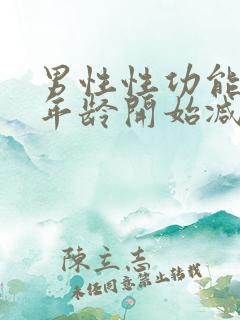 男性性功能
年龄開始减
陳立志
未经同意禁止转载